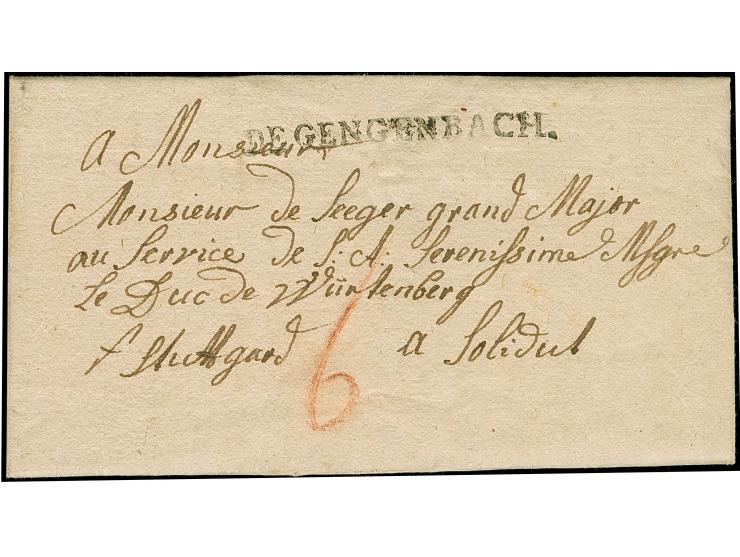 DE GENGENBACH.
a Monsieur
Monsieur de Seeger grand Major
au Service de S: A: Serenissime Msgre
Le Duc de Würtenberg
p Stuttgard a Solidut
6